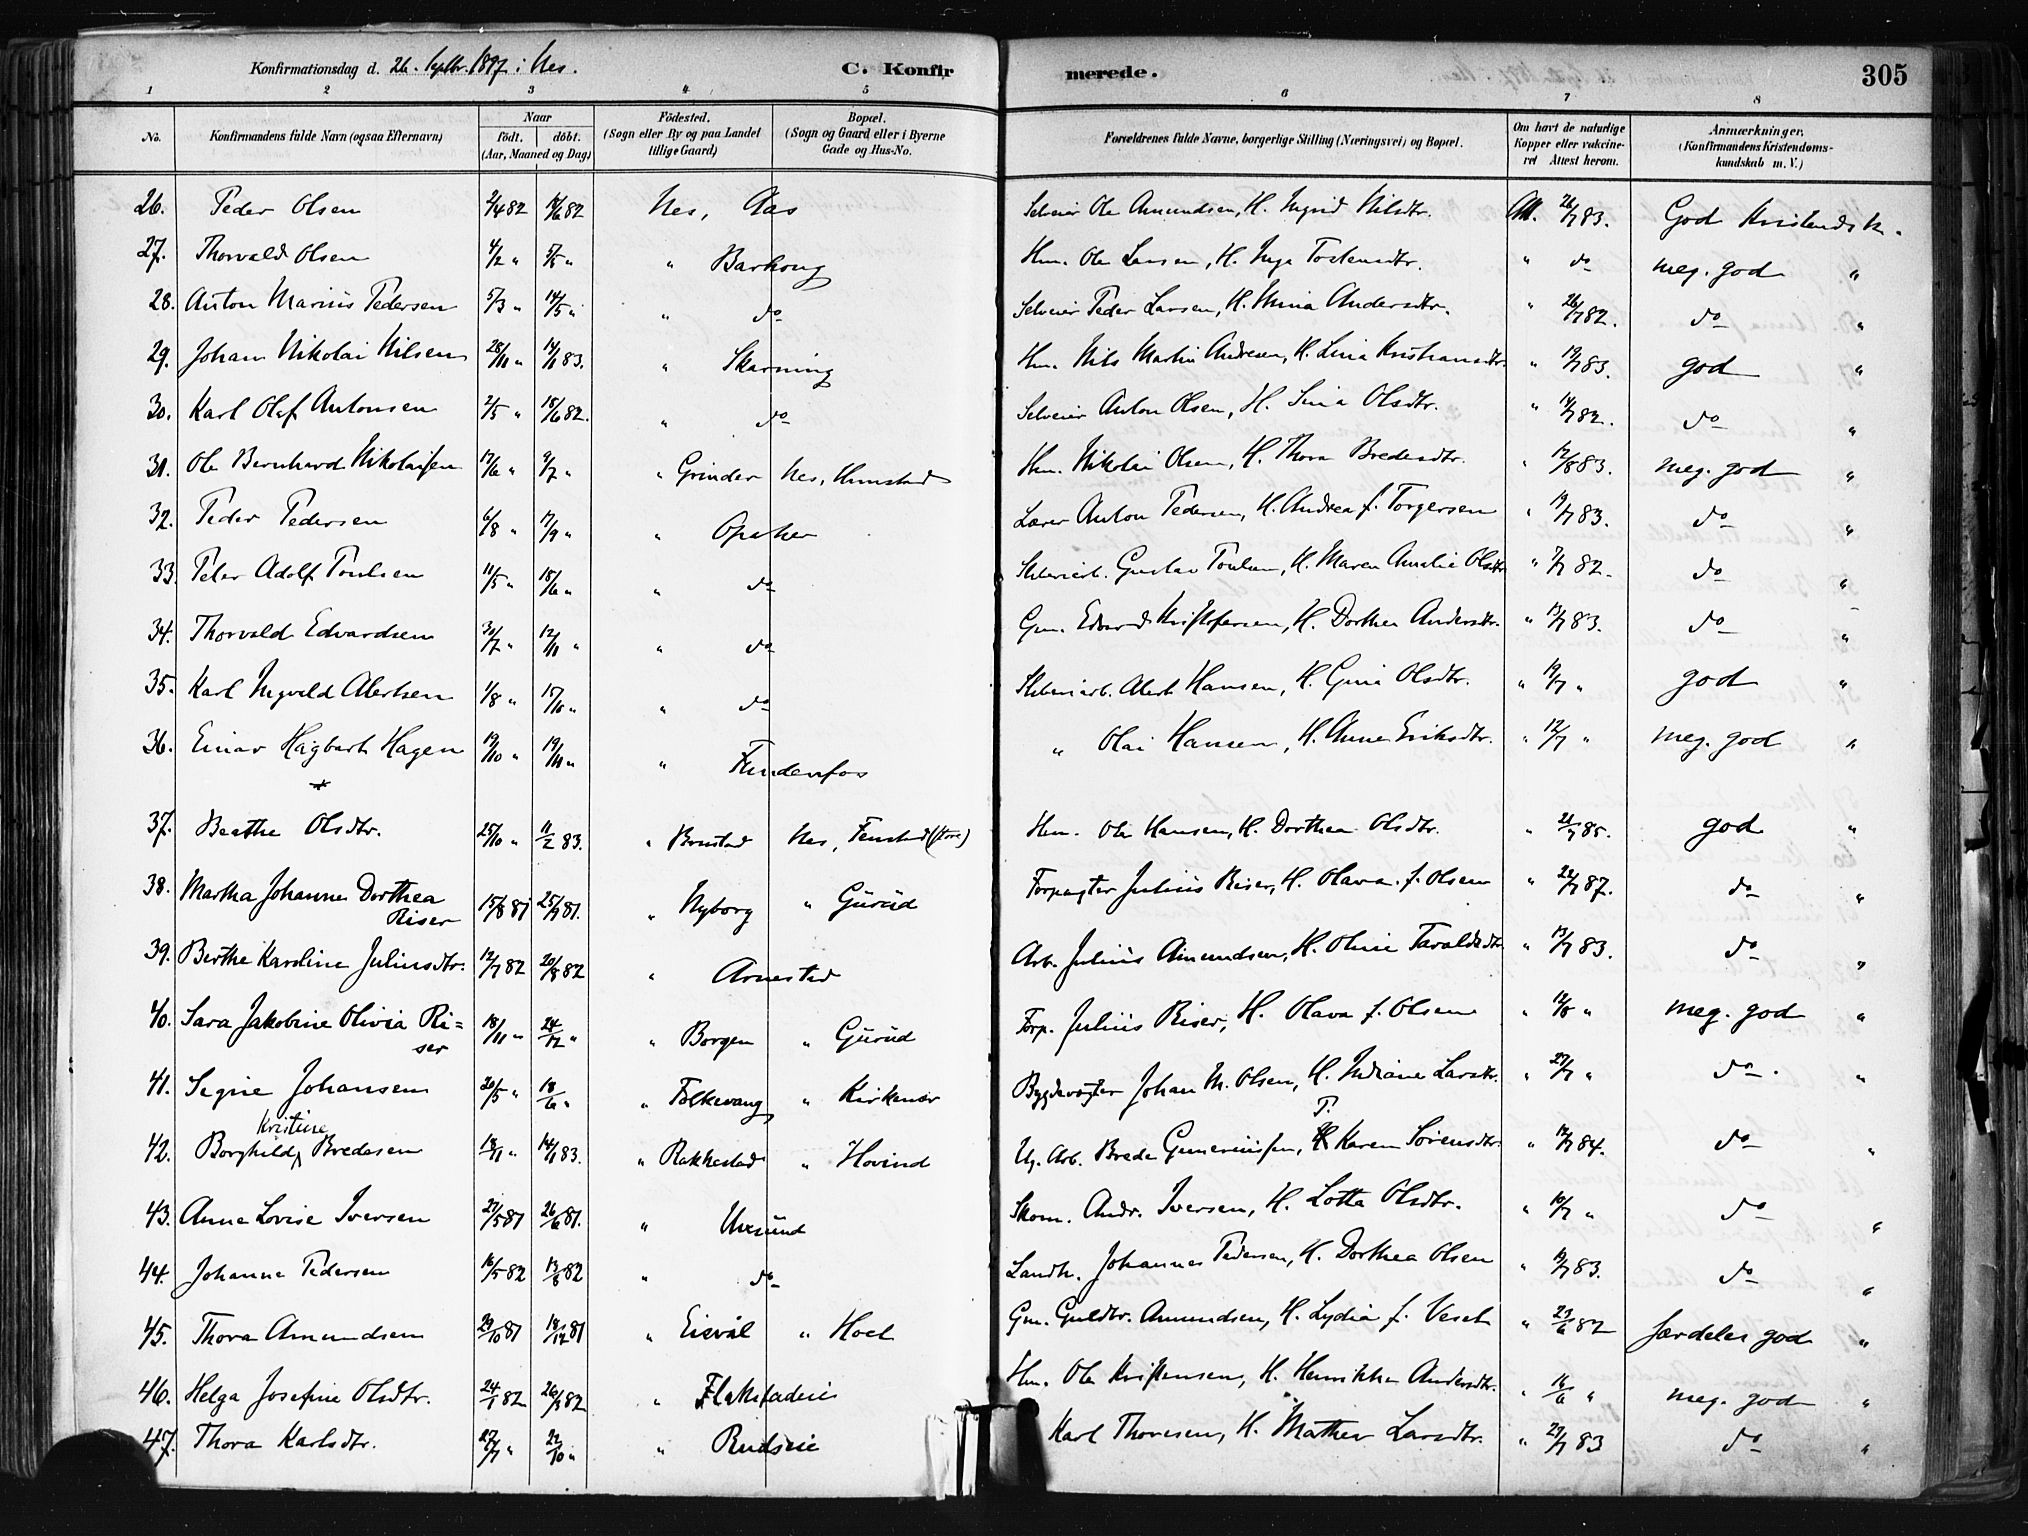 Konfirmationsdag d. 26. Septbr. 1897 i Nes.
C. Konfirmerede.
305
1 2 3 4 5 6 7 8
No.
Konfirmandens fulde Navn (ogsaa Efternavn)
Naar
födt. döbt.
(Aar, Maaned og Dag)
Födested.
(Sogn eller By og paa Landet
tillige Gaard)
Bopæl.
(Sogn og Gaard eller i Byerne
Gade og Hus-No.
Forældrenes fulde Navne, borgerlige Stilling (Næringsvei) og Bopæl.
Om havt de naturlige
Kopper eller vakcine-
ret Attest herom.
Anmærkninger.
(Konfirmandens Kristendoms-
kundskab m. V.)
26. Peder Olsen 2/4 82 18/6 82 Nes, Aas Selveier Ole Amundsen, H. Ingrid Nilsdtr. Att. 26/7 83. God Kristendsk.
27. Thorvald Olsen 4/2 " 5/5 " " Barkong Hm. Ole Larsen, H. Inga Tostensdtr. " do meg. god "
28. Anton Marius Pedersen 5/3 " 14/5 " " do Selveier Peder Larsen, H. Mina Andersdtr. " 26/7 82. do "
29. Johan Nikolai Nilsen 28/11 " 14/1 83. " Skarning Hm. Nils Martin Andresen, H. Lina Kristiansdtr. " 19/7 83. god "
30. Karl Olaf Antonsen 2/5 " 18/6 82. " do Selveier Anton Olsen, H. Sina Olsdtr. " 14/7 82. do "
31. Ole Bernhard Nikolaisen 17/6 " 9/7 " " Grinder Nes, Hunstad Hm. Nikolai Olsen, H. Thora Bredesdtr. " 12/8 83. meg. god "
32. Peder Pedersen 6/8 " 17/9 " " Opaker Lærer Anton Pedersen, H. Andrea f. Torgersen " 19/7 83. do "
33. Peter Adolf Poulsen 11/5 " 18/6 " " do Sliberiarb. Gustav Poulsen, H. Maren Amalie Olsdtr " 7/7 82. do "
34. Thorvald Edvardsen 30/7 " 12/11 " " do Gm. Edvard Kristofersen, H. Dorthea Andersdtr. " 13/7 83. do "
35. Karl Ingvald Alertsen 1/8 " 15/10 " " do Sliberiarb. Alert Hansen, H. Gina Olsdtr. " 19/7 " god "
36. Einar Hagbart Hagen 19/10 " 19/11 " " Fundenfos " Olai Hansen, H. Anne Eriksdtr. " 12/7 " meg. god "
37. Beathe Olsdtr. 25/10 " 11/2 83. " Brustad Nes, Fenstad (store) Hm. Ole Hansen, H. Dorthea Olsdtr. " 21/7 85. god "
38. Martha Johanne Dorthea
Riser 15/8 81 25/9 81. " Nyborg " Gurud Forpagter Julius Riser, H. Olava f. Olsen " 22/7 87. do "
39. Berthe Karoline Juliusdtr. 12/7 82 20/8 82 " Arnestad Arb. Julius Amundsen, H. Oline Tavaldsdtr. " 13/7 83. do "
40. Sara Jakobine Olivia Ri=
ser 18/11 " 24/12 " " Borgen " Gurud Forp. Julius Riser, H. Olava f. Olsen " 12/8 " meg. god "
41. Signe Johansen 20/5 " 18/6 " " Folkevang " Kirkenær Bygdevogter Johan M. Olsen, H. Indiane Larsdtr. " 27/7 " do. "
42. Borghild Kristine Bredesen 18/11 " 14/1 83. " Rakkestad " Hovind Ug. Arb. Brede Gunerius[s]en, P. Karen Sørensdtr. " 12/7 84. do "
43. Anna Lovise Iversen 27/5 81 26/6 81. " Uvesund Skom. Andr. Iversen, H. Lotta Olsdtr. " 10/7 " do "
44. Johanna Pedersen 16/5 82 13/8 82 " do Landh. Johannes Pedersen, H. Dorthea Olsen " 19/7 83. do "
45. Thora Amundsen 23/10 81 18/12 81 " Eisvål " Hoel Gm. Guldbr. Amundsen, H. Lydia f. Veset " 23/6 82 særdeles god "
46. Helga Josefine Olsdtr. 24/1 82 26/3 82 " Flakstadeie Hm. Ole Kristensen, H. Henrikke Andersdtr. " 16/6 " meg. god "
47. Thora Karlsdtr. 27/7 " 22/10 " " Rudseie Karl Thoresen, H. Mathea Larsdtr. " 27/7 83 do "